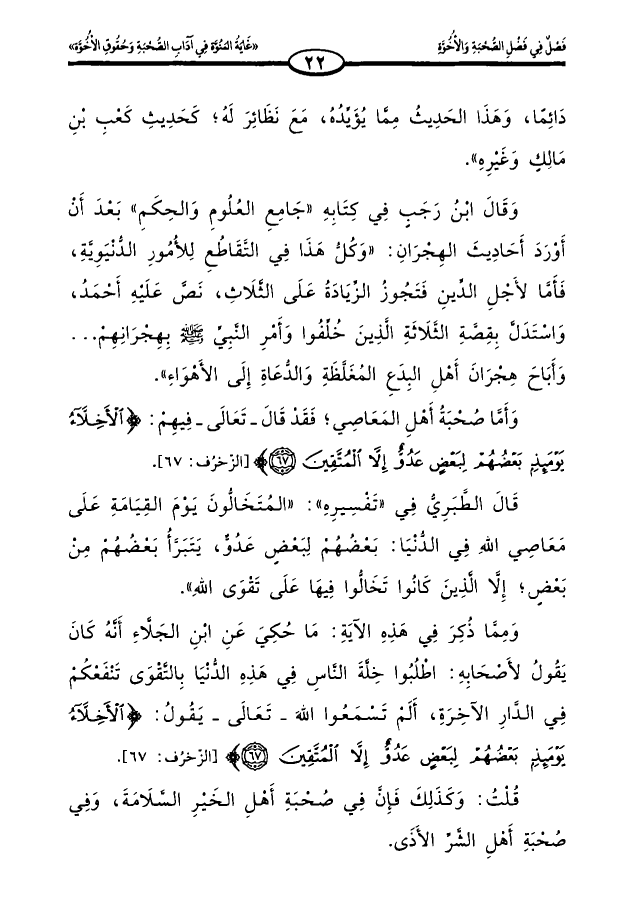 فَصْلٌ فِي فَضْلِ الصُّحْبَةِ وَالأُخُوَّةِ
٢٢
«غَايَةُ المُنُوَّة فِي آدَابِ الصُّحْبَةِ وَحُقُوقِ الأُخُوَّة»
دَائِمًا، وَهَذَا الحَدِيثُ مِمَّا يُؤَيِّدُهُ، مَعَ نَظَائِرَ لَهُ؛ كَحَدِيثِ كَعْبِ بْنِ
مَالِكٍ وَغَيْرِهِ».
وَقَالَ ابْنُ رَجَبٍ فِي كِتَابِهِ «جَامِعِ العُلُومِ وَالحِكَمِ» بَعْدَ أَنْ
أَوْرَدَ أَحَادِيثَ الهِجْرَانِ: «وَكُلُّ هَذَا فِي التَّقَاطُعِ لِلأُمُورِ الدُّنْيَوِيَّةِ،
فَأَمَّا لأَجْلِ الدِّينِ فَتَجُوزُ الزِّيَادَةُ عَلَى الثَّلَاثِ، نَصَّ عَلَيْهِ أَحْمَدُ،
وَاسْتَدَلَّ بِقِصَّةِ الثَّلَاثَةِ الَّذِينَ خُلِّفُوا وَأَمْرِ النَّبِيِّ ﷺ بِهِجْرَانِهِمْ...
وَأَبَاحَ هِجْرَانَ أَهْلِ البِدَعِ المُغَلَّظَةِ وَالدُّعَاةِ إِلَى الأَهْوَاءِ».
وَأَمَّا صُحْبَةُ أَهْلِ المَعَاصِي؛ فَقَدْ قَالَ ـ تَعَالَى ـ فِيهِمْ: ﴿ٱلْأَخِلَّآءُ
يَوْمَئِذٍۭ بَعْضُهُمْ لِبَعْضٍ عَدُوٌّ إِلَّا ٱلْمُتَّقِينَ ٦٧﴾ [الزّخرُف: ٦٧].
قَالَ الطَّبَرِيُّ فِي «تَفْسِيرِهِ»: «المُتَخَالُّونَ يَوْمَ القِيَامَةِ عَلَى
مَعَاصِي اللهِ فِي الدُّنْيَا: بَعْضُهُمْ لِبَعْضٍ عَدُوٌّ، يَتَبَرَّأُ بَعْضُهُمْ مِنْ
بَعْضٍ؛ إِلَّا الَّذِينَ كَانُوا تَخَالُّوا فِيهَا عَلَى تَقْوَى اللهِ».
وَمِمَّا ذُكِرَ فِي هَذِهِ الآيَةِ: مَا حُكِيَ عَنِ ابْنِ الجَلَّاءِ أَنَّهُ كَانَ
يَقُولُ لأَصْحَابِهِ: اطْلُبُوا خِلَّةَ النَّاسِ فِي هَذِهِ الدُّنْيَا بِالتَّقْوَى تَنْفَعْكُمْ
فِي الدَّارِ الآخِرَةِ، أَلَمْ تَسْمَعُوا اللهَ ـ تَعَالَى ـ يَقُولُ: ﴿ٱلْأَخِلَّآءُ
يَوْمَئِذٍۭ بَعْضُهُمْ لِبَعْضٍ عَدُوٌّ إِلَّا ٱلْمُتَّقِينَ ٦٧﴾ [الزّخرُف: ٦٧].
قُلْتُ: وَكَذَلِكَ فَإِنَّ فِي صُحْبَةِ أَهْلِ الخَيْرِ السَّلَامَةَ، وَفِي
صُحْبَةِ أَهْلِ الشَّرِّ الأَذَى.